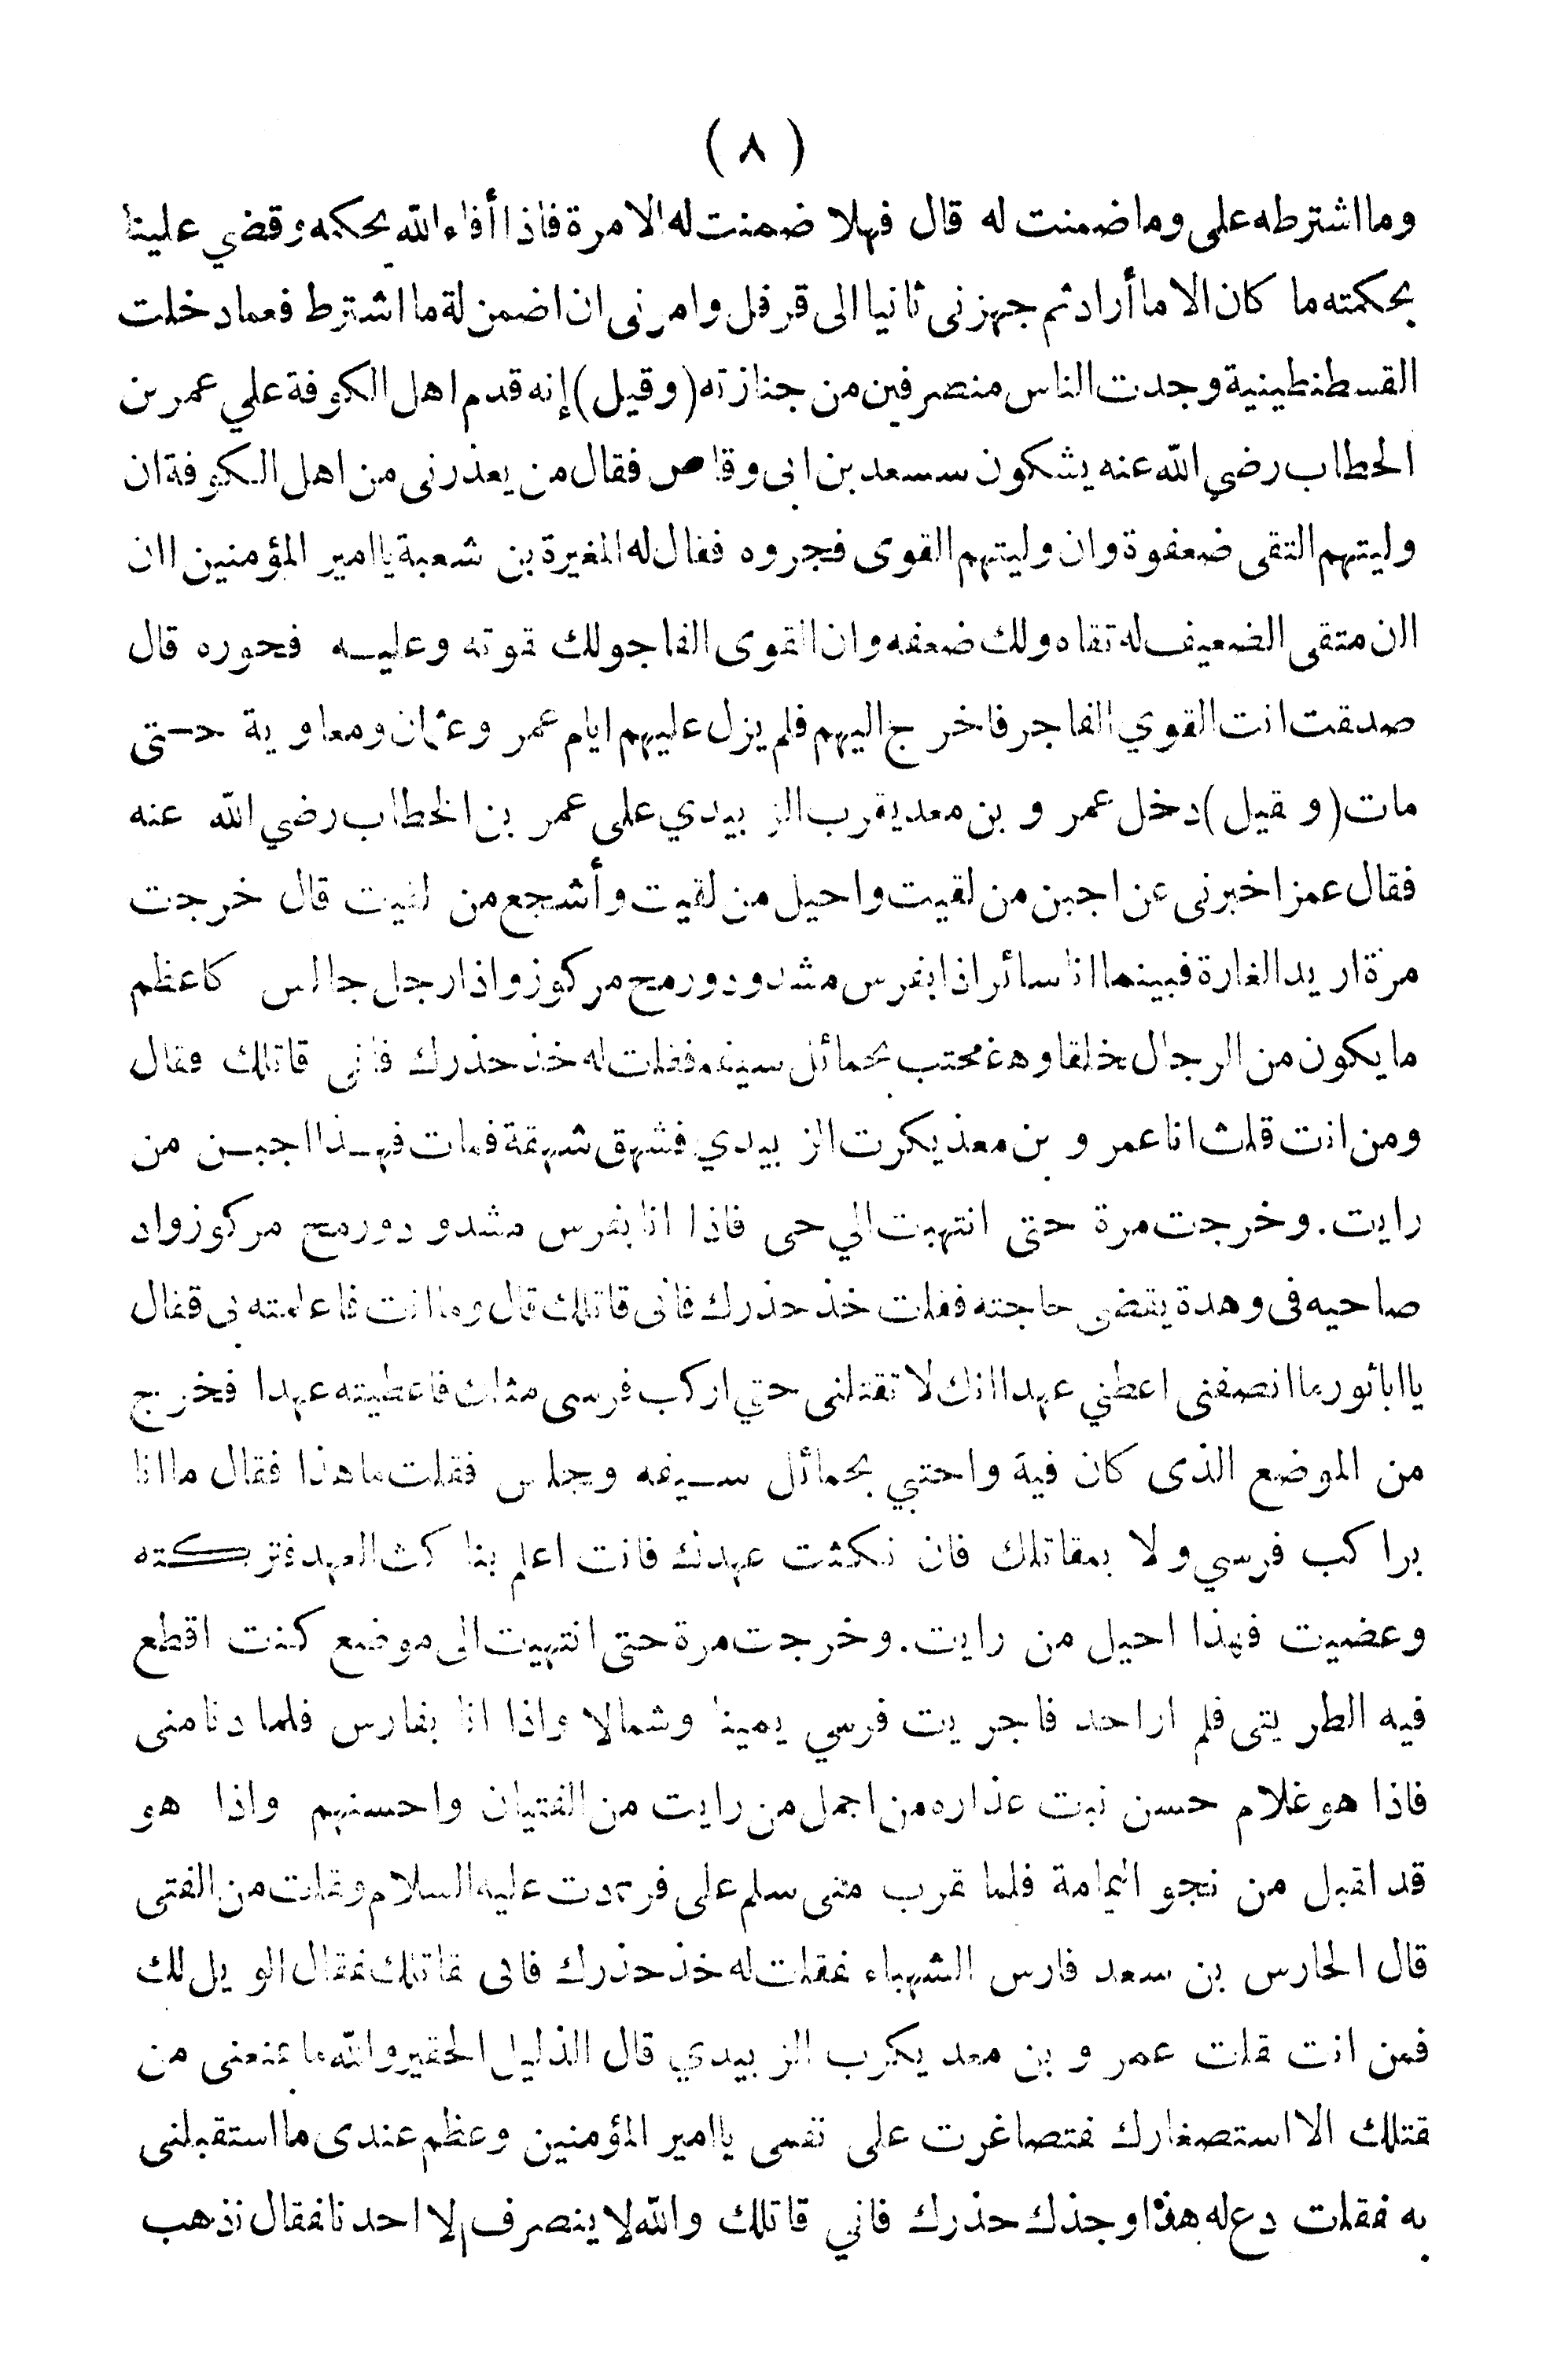 ( ٨ )
وما اشترطه على وما ضمنت له قال فهلا ضمنت له الامرة فاذا أفاء الله بحكمه وقضي علينا
بحكمته ما كان الا ما أراد ثم جهزنى ثانيا الى قرفل وامرنى ان اضمن لة ما اشترط فعماد خلت
القسطنطينية وجدت الناس منصرفين من جنازته (وقيل) إنه قدم اهل الكوفة علي عمر بن
الخطاب رضي الله عنه يشكون سسعد بن ابى وقاص فقال من يعذرنى من اهل الكوفة ان
وليتهم التقى ضعفوة وان وليتهم القوى فجروه فقال له المغيرة بن شعبة يا امير المؤمنين اان
اان متقى الضعيف له تقاه ولك ضعفه وان القوى الفاجو لك قوته وعليه فحوره قال
صدقت انت القوي الفاجر فاخرج اليهم فلم يزل عليهم ايام عمر وعثمان ومعاوية حتى
مات (وقيل) دخل عمرو بن معديقرب الزبيدي على عمر بن الخطاب رضي الله عنه
فقال عمز اخبرنى عن اجبن من لقيت واحيل من لقيت وأشجع من لقيت قال خرجت
مرة اريد الغارة فبينما انا سائر اذا بفرس مشدود ورمح مركوز واذا رجل جالس كاعظم
ما يكون من الرجال خلقا وهة محتب بحمائل سيفه فقلت له خذ حذرك فانى قاتلك فقال
ومن انت قلت انا عمرو بن معذيكرت الزبيدي فشهق شهقة فمات فهذا اجبن من
رايت. وخرجت مرة حتى انتهيت الي حى فاذا انا بفرس مشدود ورمح مركوز واد
صاحبه فى وهدة يقضى حاجته فقلت خذ حذرك فانى قاتلك قال وما انت فاعلمته بى فقال
يا ابا ثور ما انصفنى اعطني عهدا انك لا تقتلنى حتي اركب فرسى مثلك فاعطيته عهدا فخرج
من الموضع الذى كان فية واحتبي بحمائل سيفه وجلس فقلت ما هذا فقال ما انا
براكب فرسي ولا بمقاتلك فان نكثت عهدك فانت اعلم بناكث العهد فتركته
وعضيت فهذا احيل من رايت. وخرجت مرة حتى انتهيت الى موضع كنت اقطع
فيه الطريتى فلم ار احد فاجريت فرسي يمينا وشمالا واذا انا بفارس فلما دنا منى
فاذا هو غلام حسن نبت عذاره من اجمل من رايت من الفتيان واحسنهم واذا هو
قد اقبل من نجو اليمامة فلما قرب منى سلم على فرددت عليه السلام وقلت من الفتى
قال الحارس بن سعد فارس الشهباء فقلت له خذ حذرك فانى قاتلك فقال الويل لك
فمن انت قلت عمرو بن معد يكرب الزبيدي قال الذليل الحقير والله ما يمنعنى من
قتلك الا استصغارك فتصاغرت على نفسى يا امير المؤمنين وعظم عندى ما استقبلنى
به فقلت دع له هذا وجذك حذرك فاني قاتلك والله لا ينصرف الا احدنا فقال نذهب